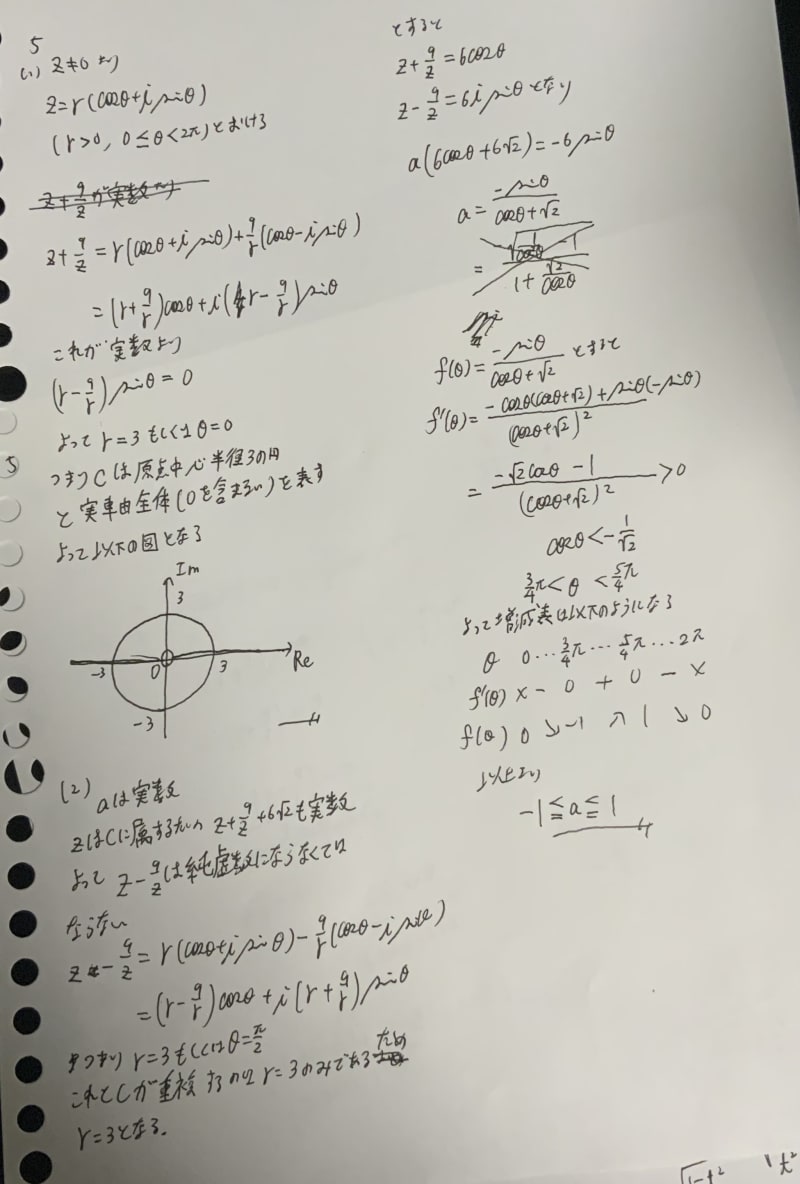 5
(1) z≠0 より
z=r(cosθ+i sinθ)
(r>0, 0≤θ<2π)とおける
z+9/zが実数より
z+9/z=r(cosθ+i sinθ)+9/r(cosθ-i sinθ)
=(r+9/r)cosθ+i(r-9/r)sinθ
これが実数より
(r-9/r)sinθ=0
よって r=3 もしくは θ=0
つまりCは原点中心半径3の円
と実軸全体(0を含まない)を表す
よって以下の図となる
Im
3
-3 0 3 Re
-3
(2) aは実数
zはCに属するため z+9/z+6√2も実数
よって z-9/zは純虚数にならなくては
ならない
z-9/z=r(cosθ+i sinθ)-9/r(cosθ-i sinθ)
=(r-9/r)cosθ+i(r+9/r)sinθ
つまり r=3もしくはθ=π/2
これでCが重複するのは r=3のみであるため
r=3となる.
とすると
z+9/z=6cosθ
z-9/z=6i sinθ となり
a(6cosθ+6√2)=-6sinθ
a=-sinθ/(cosθ+√2)
=(√(1/cosθ)-1)/(1+√2/cosθ)
f(θ)=-sinθ/(cosθ+√2) とすると
f'(θ)=(-cosθ(cosθ+√2)+sinθ(-sinθ))/(cosθ+√2)²
=(-√2cosθ-1)/(cosθ+√2)²>0
cosθ<-1/√2
3/4π<θ<5/4π
よって増減表は以下のようになる
θ 0…3/4π…5/4π…2π
f'(θ) × - 0 + 0 - ×
f(θ) 0 ↘ -1 ↗ 1 ↘ 0
以上より
-1≦a≦1
√1-t² t²